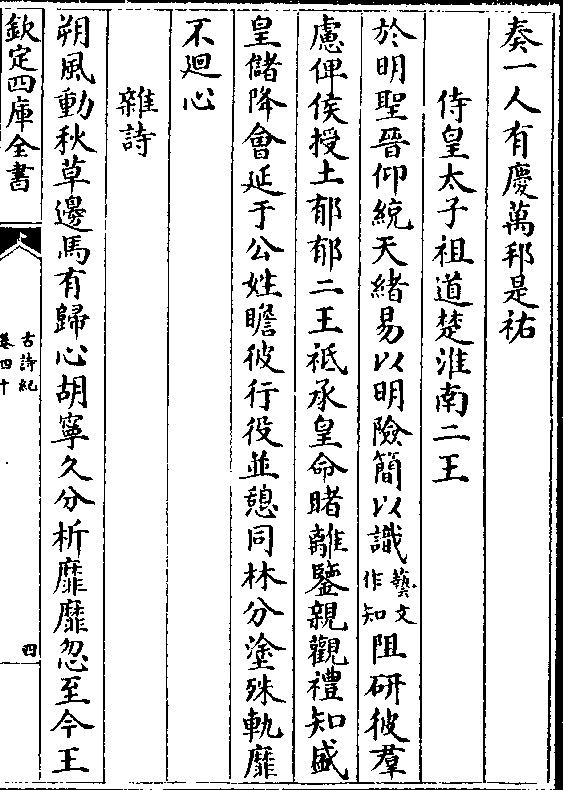 奏一人有慶萬邦是祐
侍皇太子祖道楚淮南二王
於明聖晉仰統天緒易以明險簡以識藝文作知阻研彼羣
慮俾侯授土郁郁二王祗承皇命睹離鑒親觀禮知盛
皇儲降會延于公姓瞻彼行役並憩同林分塗殊軌靡
不迴心
雜詩
朔風動秋草邊馬有歸心胡寧久分析靡靡忽至今王
欽定四庫全書
古詩紀
卷四十
四